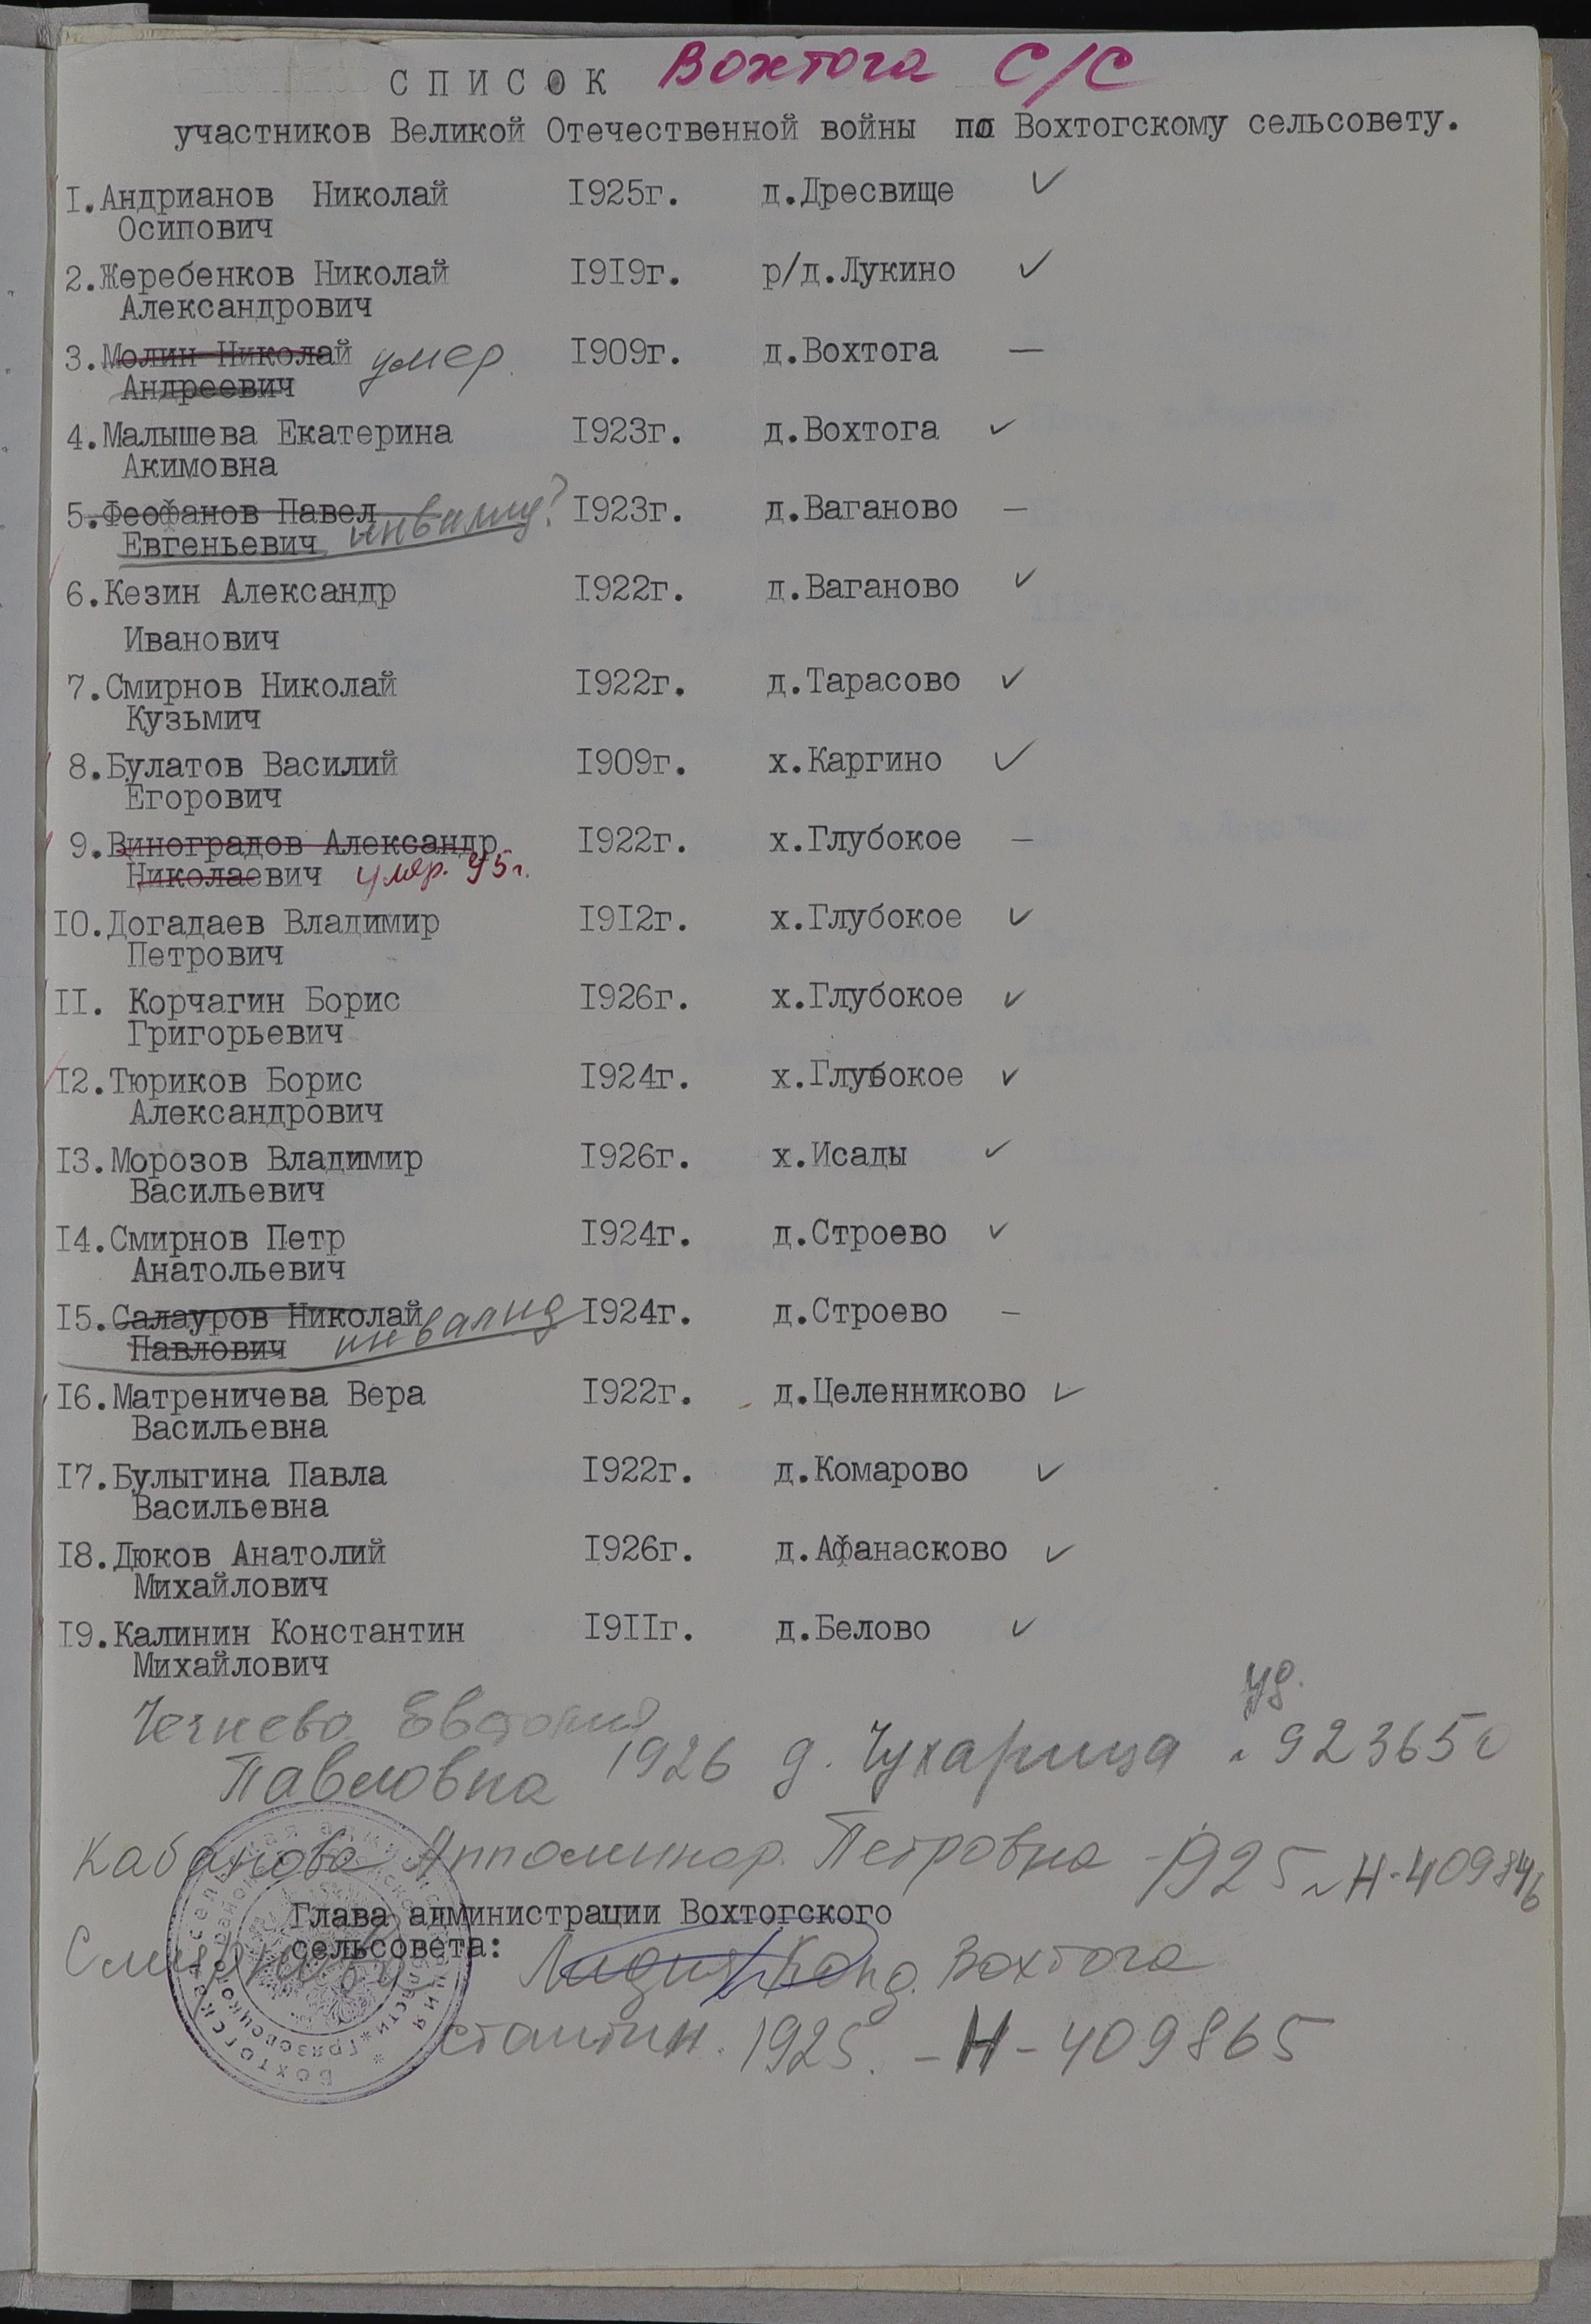 СПИСОК Вохтога С/С
участников Великой Отечественной войны по Вохтогскому сельсовету.
I.Андрианов Николай I925г. д.Дресвище ✓
Осипович
2.Жеребенков Николай I9I9г. р/д.Лукино ✓
Александрович
3.Молин Николай умер. I909г. д.Вохтога —
Андреевич
4.Малышева Екатерина I923г. д.Вохтога ✓
Акимовна
5.Феофанов Павел инвалид? I923г. д.Ваганово —
Евгеньевич
6.Кезин Александр I922г. д.Ваганово ✓
Иванович
7.Смирнов Николай I922г. д.Тарасово ✓
Кузьмич
8.Булатов Василий I909г. х.Каргино ✓
Егорович
9.Виноградов Александр I922г. х.Глубокое —
Николаевич умер. 95г.
I0.Догадаев Владимир I9I2г. х.Глубокое ✓
Петрович
II. Корчагин Борис I926г. х.Глубокое ✓
Григорьевич
I2.Тюриков Борис I924г. х.Глубокое ✓
Александрович
I3.Морозов Владимир I926г. х.Исады ✓
Васильевич
I4.Смирнов Петр I924г. д.Строево ✓
Анатольевич
I5.Салауров Николай инвалид I924г. д.Строево —
Павлович
I6.Матреничева Вера I922г. д.Целенниково ✓
Васильевна
I7.Булыгина Павла I922г. д.Комарово ✓
Васильевна
I8.Дюков Анатолий I926г. д.Афанасково ✓
Михайлович
I9.Калинин Константин I9IIг. д.Белово ✓
Михайлович
уд.
Павловна 1926 д. Чухарица 923650
Кабанова Апполинар. Петровна - 1925 Н-409846
Глава администрации Вохтогского
сельсовета:
Смирнова Лидия Конс д. Вохтога
стантин. 1925. - Н - 409865